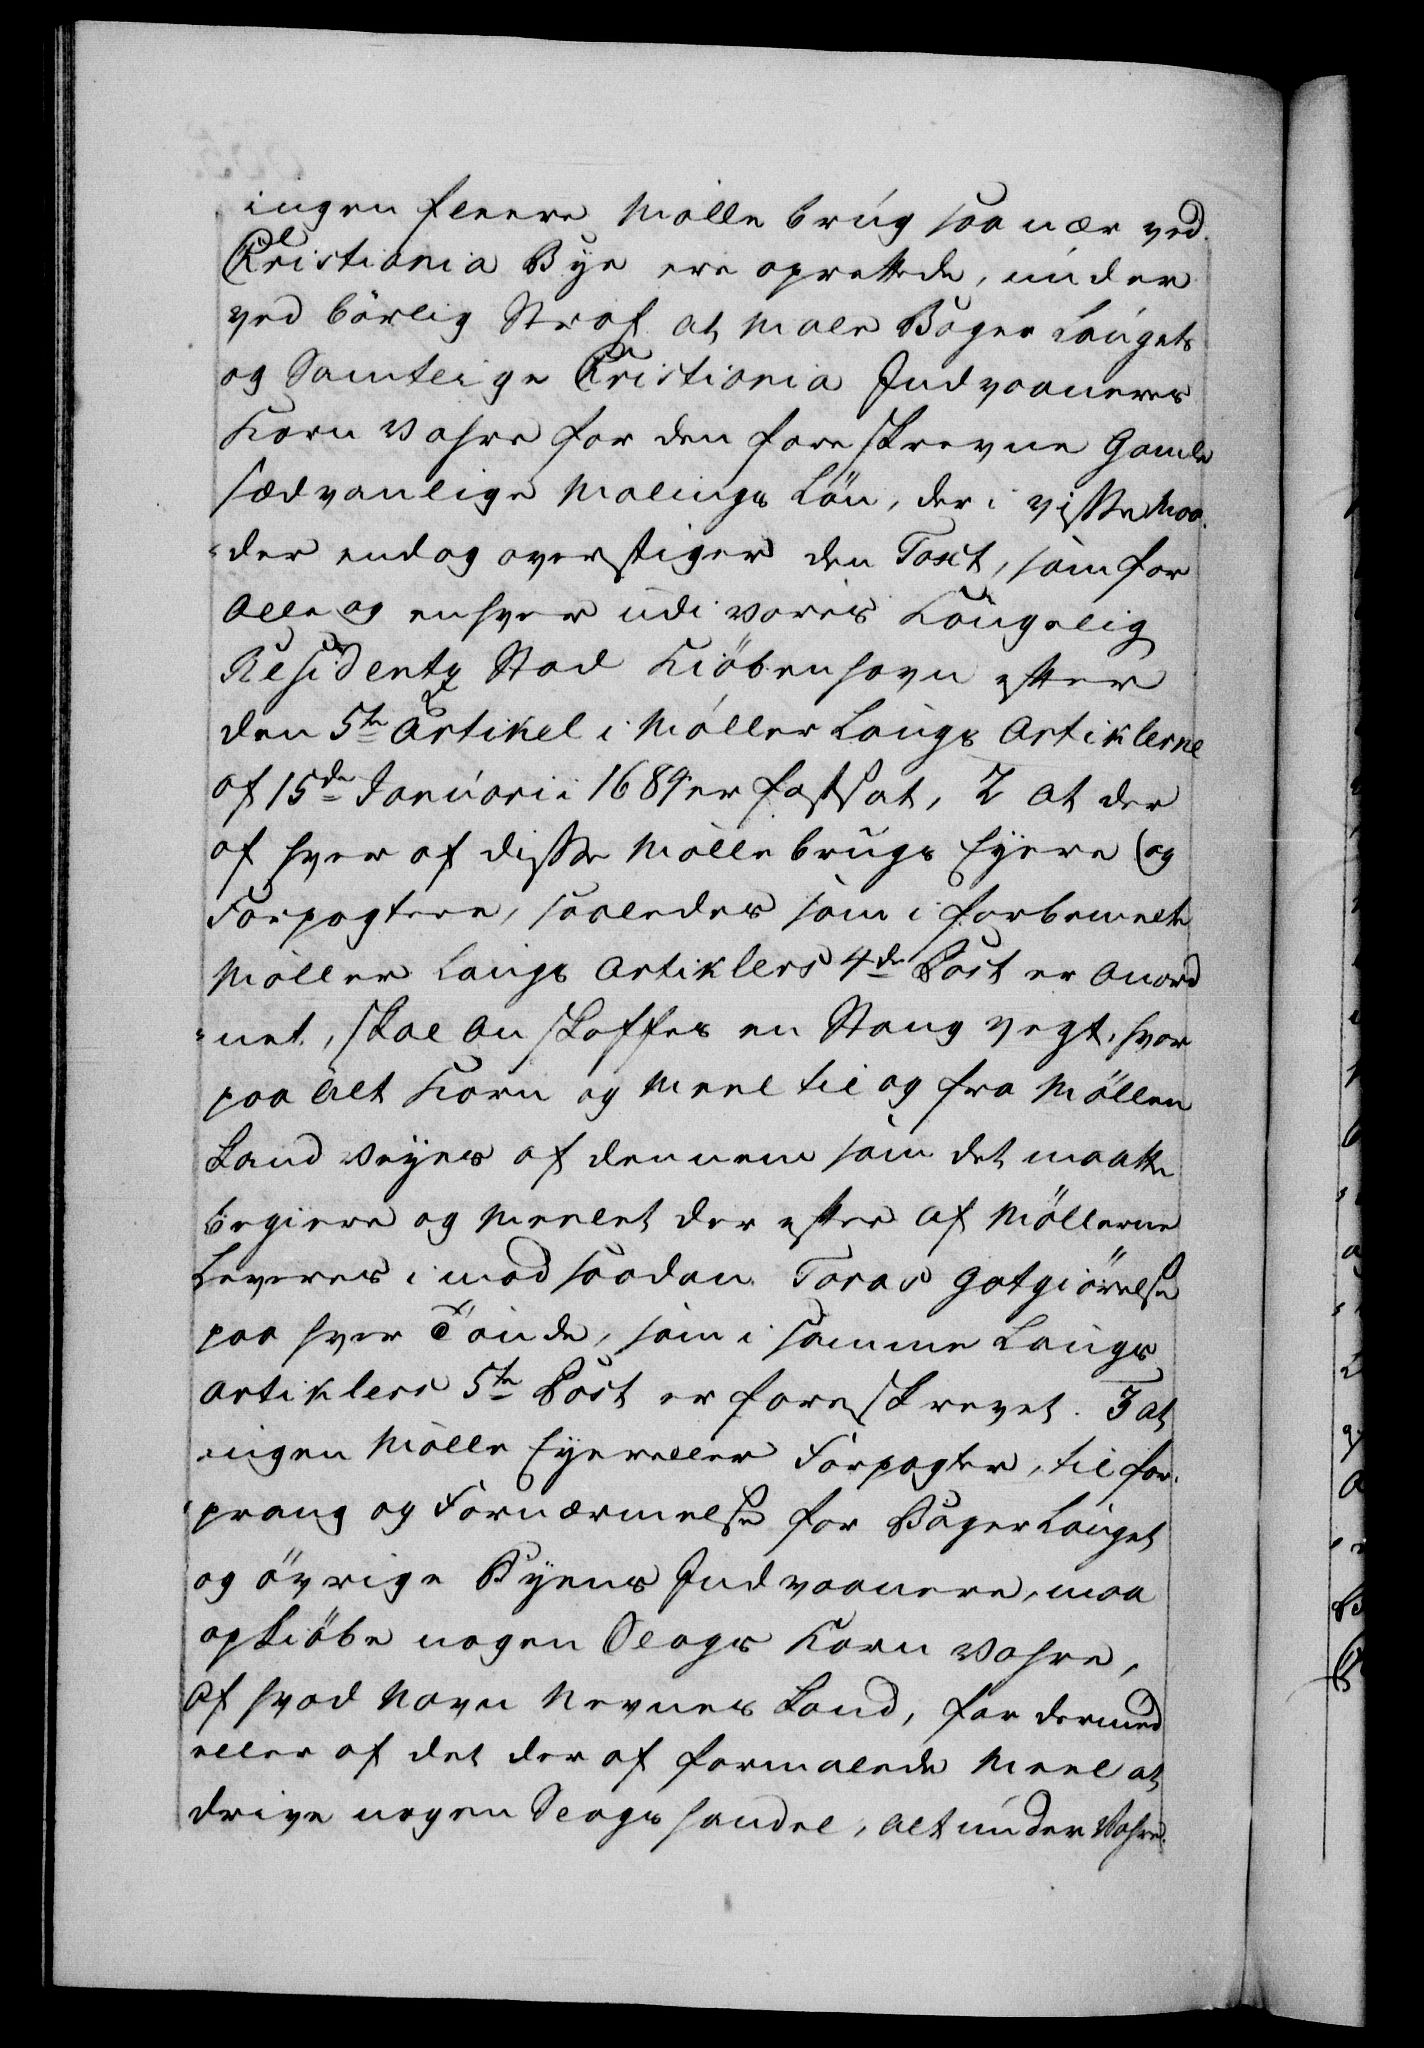 ingen fleere Mølle brug saa nær ved
Christiania Bye ere oprettede, under
ved børlig Straf at male Bager Lauget
og Samtlige Christiania Indvaaneres
Korn Vahre for den foreskrevne Gamle
sædvanlige Malings Løn, der i visse Maa-
=der endog overstiger den Taxt, som for
alle og enhver udi vores Kongelig
Residentz Stad Kiøbenhavn efter
den 5te Artikel i Møller Laugs Artiklerne
af 15de Januarii 1689 er fastsat, 2 at der
af hver af disse Mølle brugs Eyere (og
Forpagtere, saaledes som i forbemelte
Møller Laugs Artiklers 4de Post er anord
=net, skal anskaffes en Stang vegt, hvor
paa alt Korn og Meel til og fra Møllen
Kand veyes af dennem som det maatte
begiere og Meelet der efter af Møllerne
Leveres imod saadan Taras Gotgiørelse
paa hver Tønde, som i samme Laugs
Artiklers 5te Post er foreskrevet. 3 at
ingen Mølle Eyer eller Forpagter, til for-
=prang og Fornærmelse for Bager Lauget
og øvrige Byens Indvaanere, maa
opkiøbe nogen Slags Korn Vahre,
af hvad Navn Nevnes Kand, for dermed
eller af det der af formalede Meel at
drive nogen Slags handel, alt under Vahre-